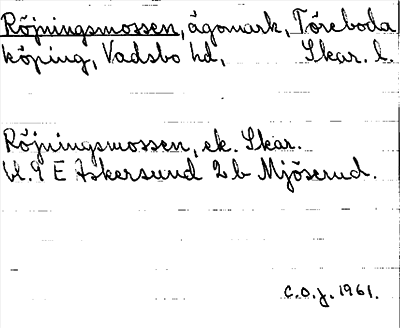 Röjningsmossen, ägomark, Töreboda
köping, Vadsbo hd, Skar. l.
Röjningsmossen, ek. Skar.
bl. 9 E Askersund 2 b Mjöserud.
C.O.J. 1961.